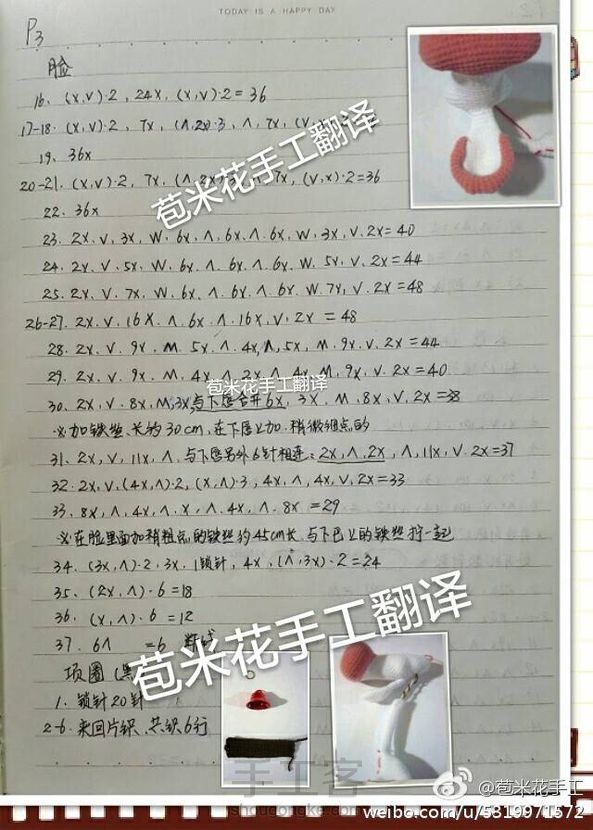 TODAY IS A HAPPY DAY
P3
脸
16. (X,V)·2, 24X, (X,V)·2=36
17-18. (X,V)·2, 7X, (Λ,2X)·3, Λ, 7X,
19. 36X
20-21. (X,V)·2, 7X, 7X, (V,X)·2=36
22. 36X
23. 2X, V, 3X, W, 6X, Λ, 6X, Λ, 6X, W, 3X, V, 2X=40
24. 2X, V, 5X, W, 6X, Λ, 6X, Λ, 6X, W, 5X, V, 2X=44
25. 2X, V, 7X, W, 6X, Λ, 6X, Λ, 6X, W, 7X, V, 2X=48
26-27. 2X, V, 16X, Λ, 6X, Λ, 16X, V, 2X=48
28. 2X, V, 9X, M, 5X, Λ, 4X, Λ, 5X, M, 9X, V, 2X=44
29. 2X, V, 9X, M, 4X, Λ, 2X, Λ, 4X, M, 9X, V, 2X=40
30. 2X, V, 8X, M, 3X, 与下唇合并6X, 3X, M, 8X, V, 2X=38
※加铁丝,长约30cm,在下唇上加,稍微细点的
31. 2X, V, 11X, Λ, 与下唇另外6针相连:2X, Λ, 2X, Λ, 11X, V, 2X=37
32. 2X, V, (4X,Λ)·2, (X,Λ)·3, 4X, Λ, 4X, V, 2X=33
33. 8X, Λ, 4X, Λ, X, Λ, 4X, Λ, 8X=29
※在脸里面加稍粗点的铁丝约45cm长,与下巴上的铁丝拧一起
34. (3X,Λ)·2, 3X, 1锁针, 4X, (Λ,3X)·2=24
35. (2X,Λ)·6=18
36. (X,Λ)·6=12
37. 6Λ =6 断线
项圈(黑
1. 锁针20针
2-6. 来回片织,共织6行
苞米花手工翻译
苞米花手工翻译
苞米花手工翻译
手工客
shougongke.com
@苞米花手工
weibo.com/u/5319971572